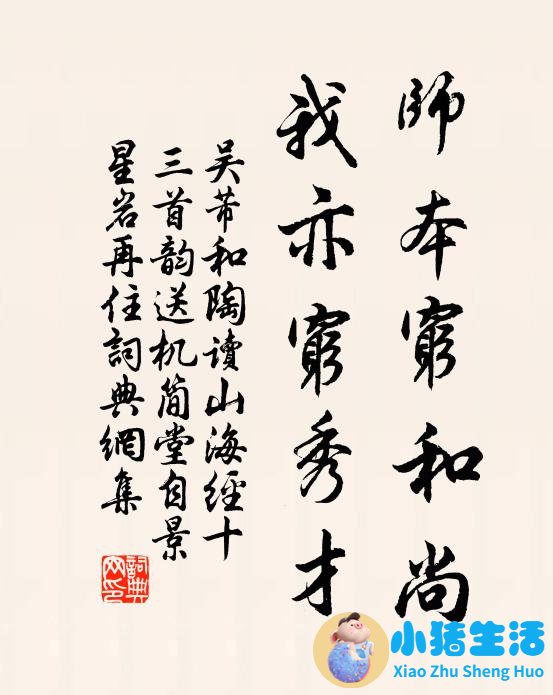 師本窮和尚
我亦窮秀才
吴芾和陶讀山海經十
三首韵送机简堂自景
星岩再住詞典網集
詞典网印
小猪生活
Xiao Zhu Sheng Huo